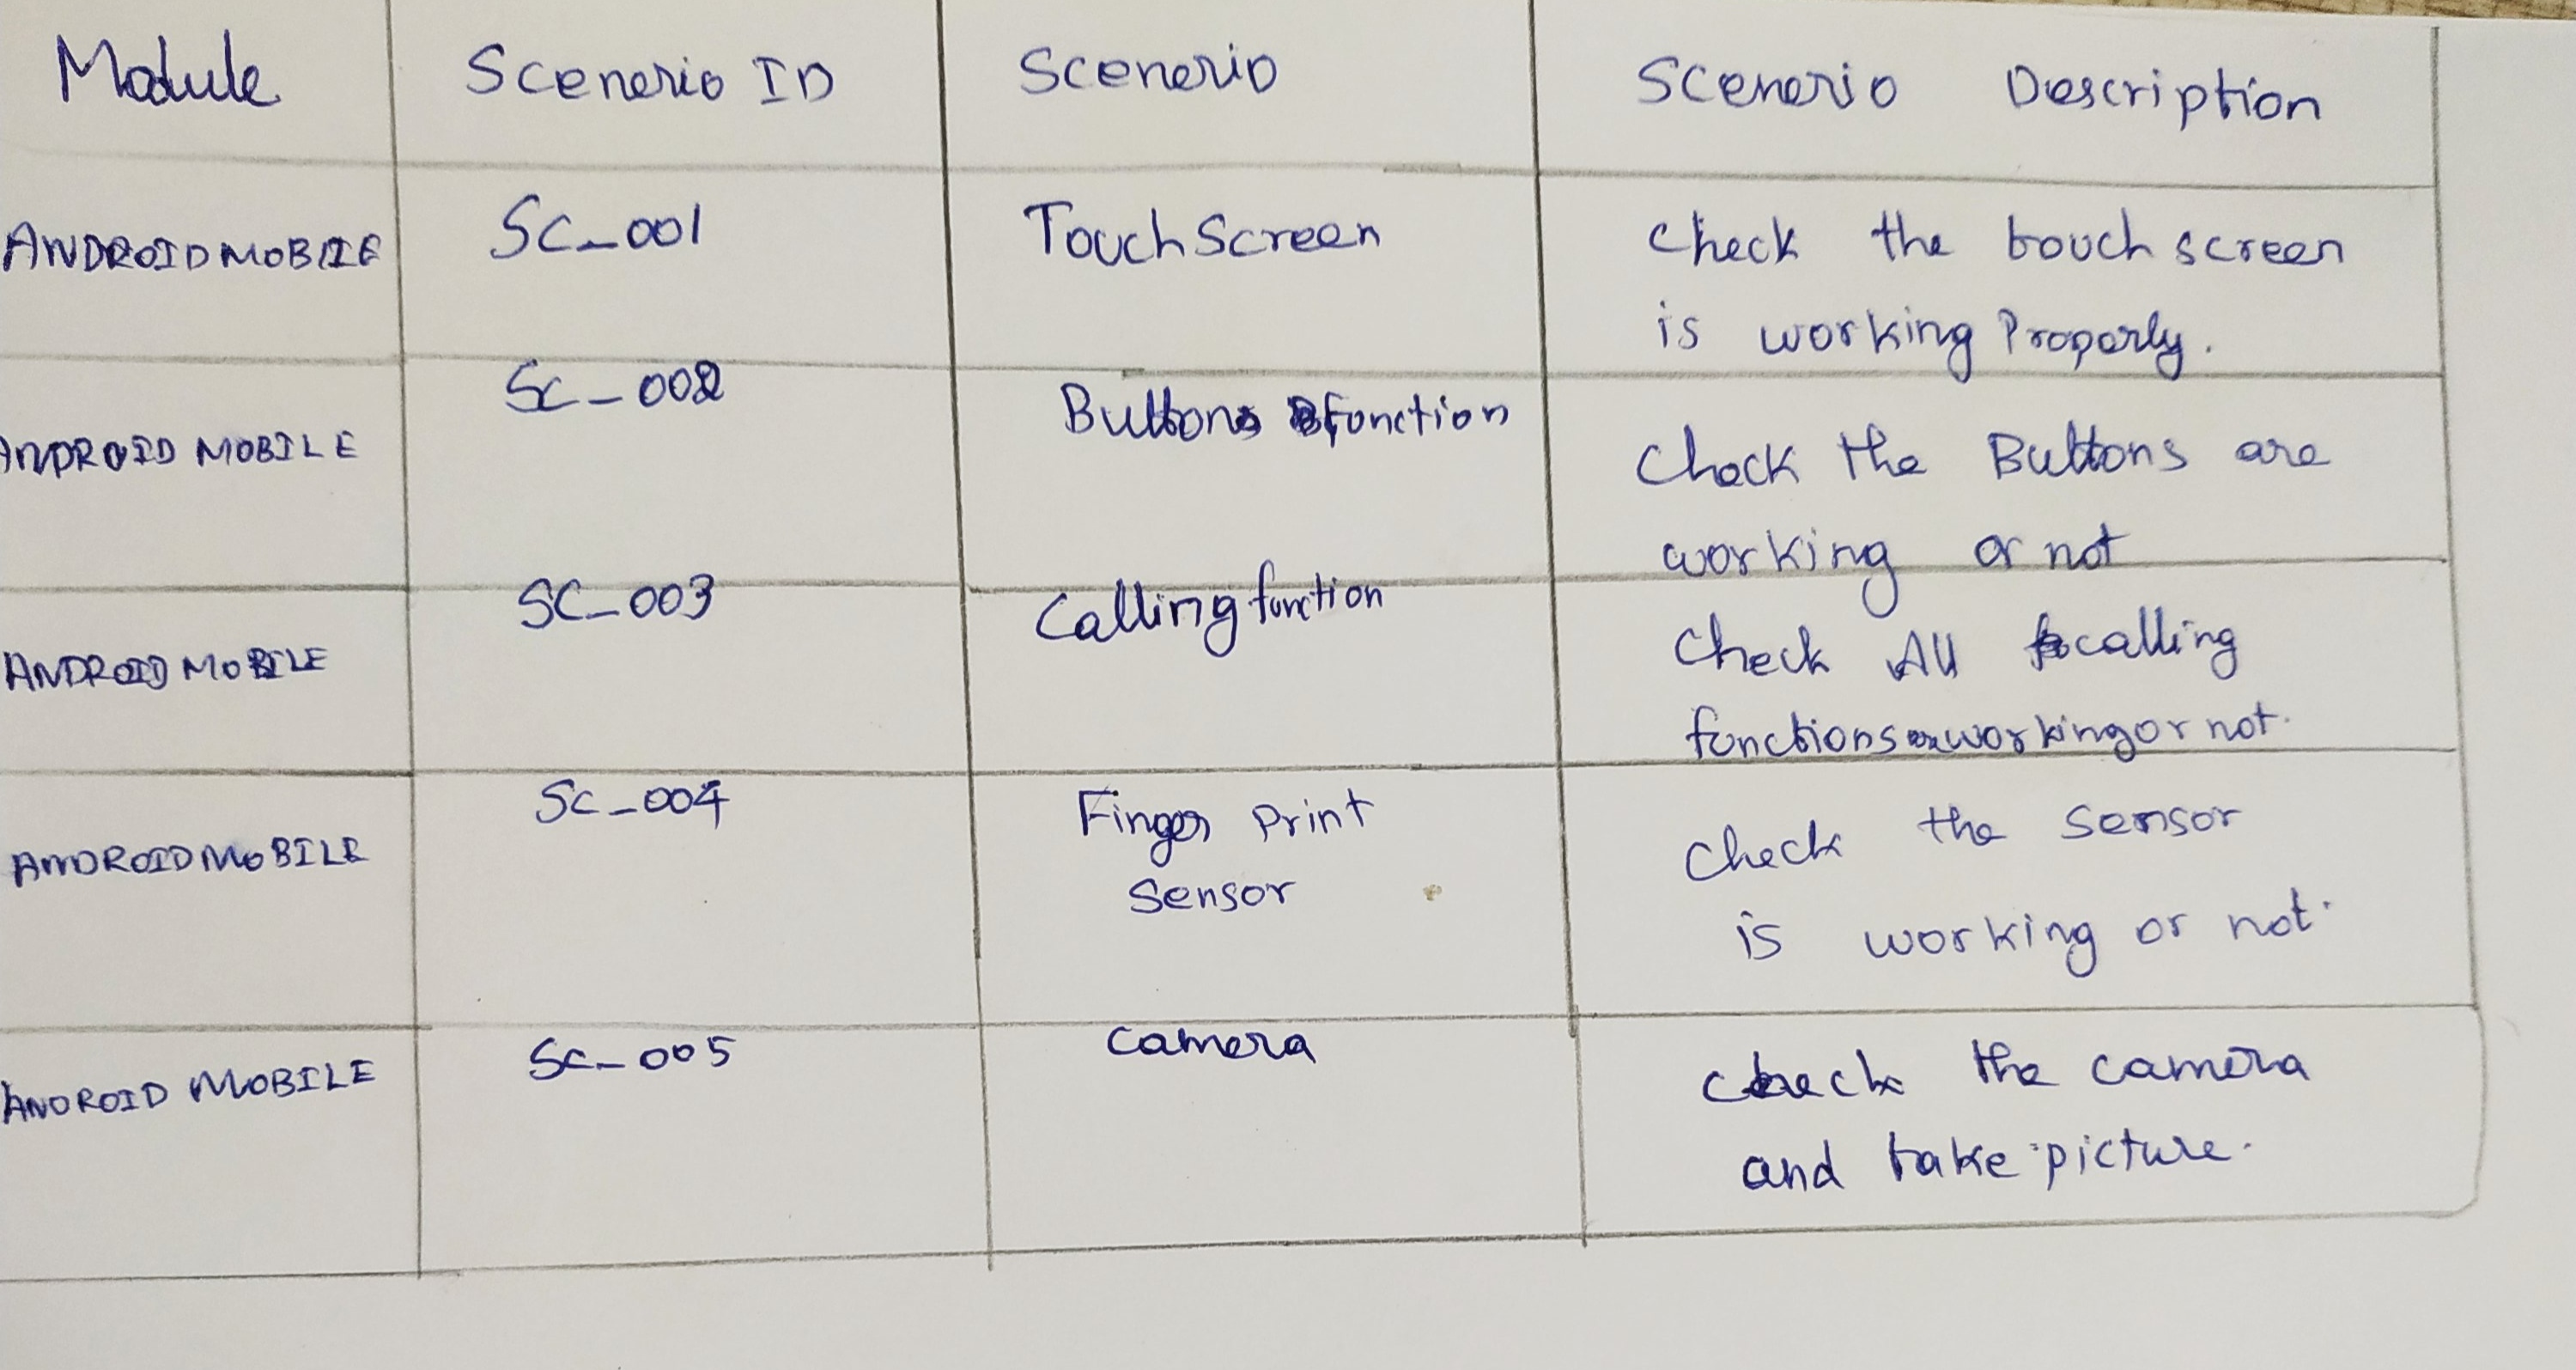 Module Scenerio ID Scenerio Scenerio Description
ANDROID MOBILE SC_001 Touch Screen Check the touch screen
is working Properly.
ANDROID MOBILE SC_002 Buttons function Check the Buttons are
working or not
ANDROID MOBILE SC_003 Calling function Check All calling
functions working or not.
ANDROID MOBILE SC_004 Finger Print Check the Sensor
Sensor is working or not.
ANDROID MOBILE SC_005 Camera Check the camera
and take picture.